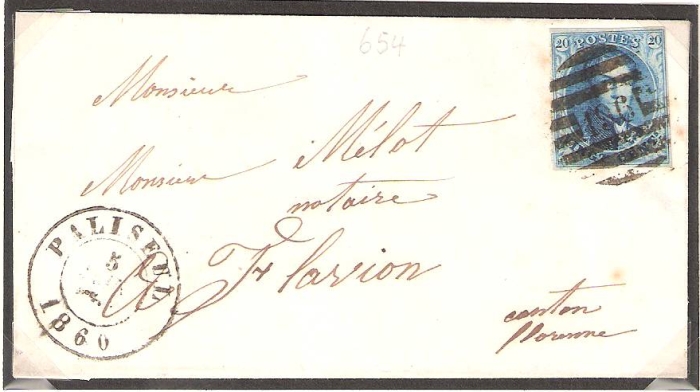 654
20 POSTES 20
Monsieur
Monsieur Mélot
notaire
à Flavion
canton
florenne
PALISEUL
5
1860